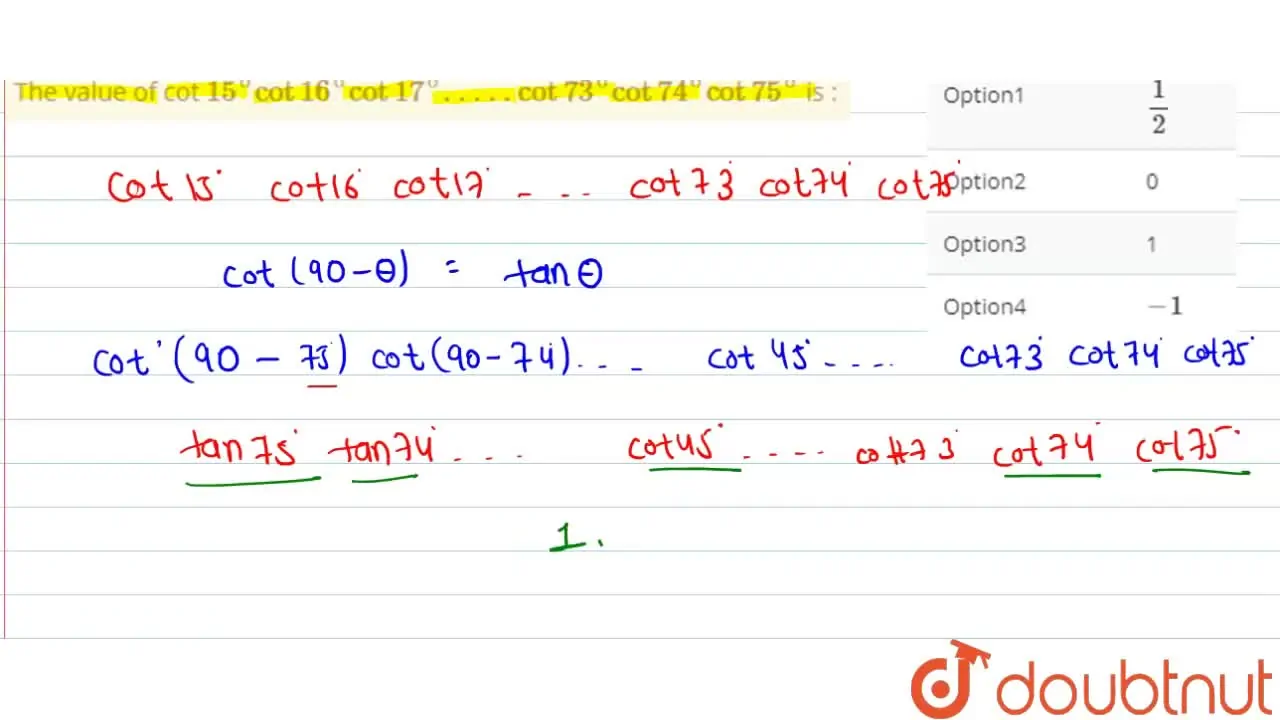 The value of cot 15° cot 16° cot 17° ..... cot 73° cot 74° cot 75° is :
Option1 1/2
Option2 0
Option3 1
Option4 −1
cot 15° cot 16° cot 17° - ... cot 73° cot 74° cot 75°
cot (90 - θ) = tan θ
cot (90 - 75) cot (90 - 74) ... cot 45° - ... cot 73° cot 74° cot 75°
tan 75° tan 74° ... cot 45° .... cot 73° cot 74° cot 75°
1.
doubtnut